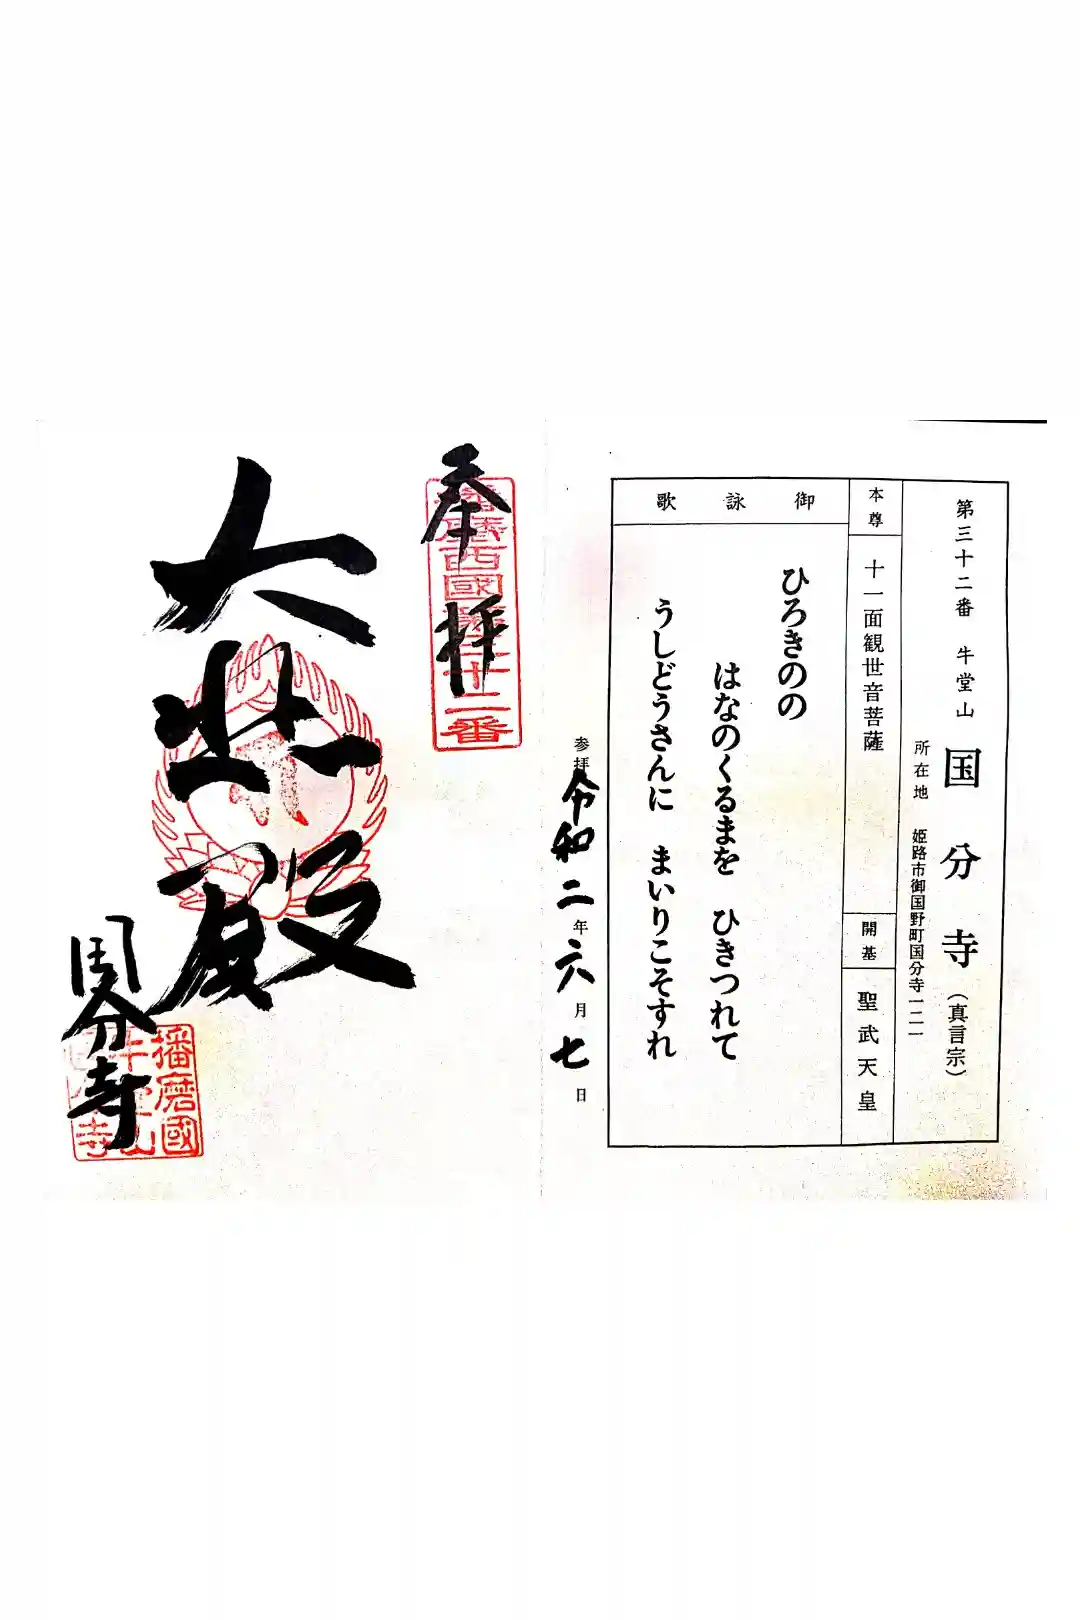 第三十二番 牛堂山 国分寺（真言宗）
所在地 姫路市御国野町国分寺一二一
本尊 十一面観世音菩薩
開基 聖武天皇
御詠歌
ひろきのの
はなのくるまを ひきつれて
うしどうさんに まいりこそすれ
参拝 令和二年六月七日
奉拝
播磨西國第三十二番
大悲殿
国分寺
播磨國
牛堂山
国分寺